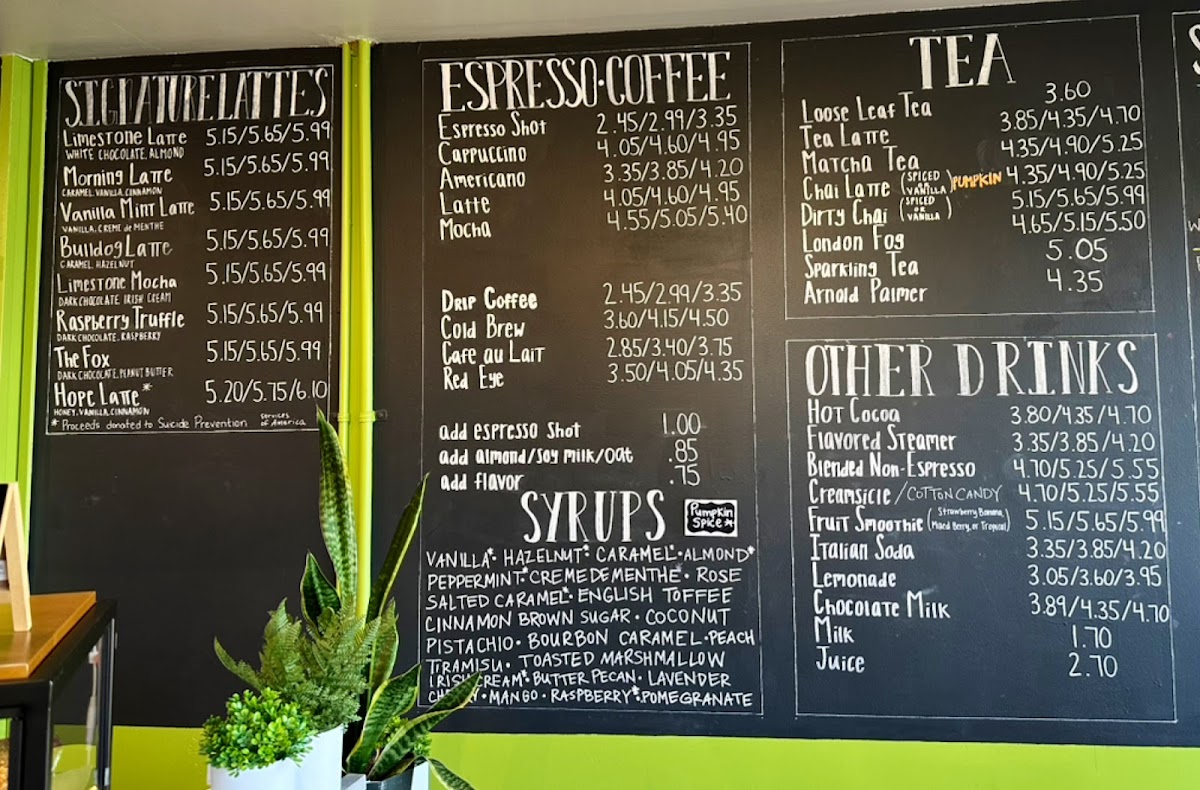 SIGNATURE LATTES
Limestone Latte 5.15/5.65/5.99
WHITE CHOCOLATE, ALMOND
Morning Latte 5.15/5.65/5.99
CARAMEL, VANILLA, CINNAMON
Vanilla Mint Latte 5.15/5.65/5.99
VANILLA, CREME de MENTHE
Bulldog Latte 5.15/5.65/5.99
CARAMEL, HAZELNUT
Limestone Mocha 5.15/5.65/5.99
DARK CHOCOLATE, IRISH CREAM
Raspberry Truffle 5.15/5.65/5.99
DARK CHOCOLATE, RASPBERRY
The Fox 5.15/5.65/5.99
DARK CHOCOLATE, PEANUT BUTTER
Hope Latte* 5.20/5.75/6.10
HONEY, VANILLA, CINNAMON
*Proceeds donated to Suicide Prevention Services of America
ESPRESSO·COFFEE
Espresso Shot 2.45/2.99/3.35
Cappuccino 4.05/4.60/4.95
Americano 3.35/3.85/4.20
Latte 4.05/4.60/4.95
Mocha 4.55/5.05/5.40
Drip Coffee 2.45/2.99/3.35
Cold Brew 3.60/4.15/4.50
Cafe au Lait 2.85/3.40/3.75
Red Eye 3.50/4.05/4.35
add espresso shot 1.00
add almond/soy milk/oat .85
add flavor .75
SYRUPS
Pumpkin Spice*
VANILLA* HAZELNUT* CARAMEL*·ALMOND*
PEPPERMINT*CREME DE MENTHE· ROSE
SALTED CARAMEL*·ENGLISH TOFFEE
CINNAMON BROWN SUGAR·COCONUT
PISTACHIO·BOURBON CARAMEL·PEACH
TIRAMISU· TOASTED MARSHMALLOW
IRISH CREAM*·BUTTER PECAN· LAVENDER
·MANGO·RASPBERRY*·POMEGRANATE
TEA
Loose Leaf Tea 3.60
Tea Latte 3.85/4.35/4.70
Matcha Tea 4.35/4.90/5.25
Chai Latte (SPICED VANILLA) PUMPKIN 4.35/4.90/5.25
Dirty Chai (SPICED OR VANILLA) 5.15/5.65/5.99
London Fog 4.65/5.15/5.50
Sparkling Tea 5.05
Arnold Palmer 4.35
OTHER DRINKS
Hot Cocoa 3.80/4.35/4.70
Flavored Steamer 3.35/3.85/4.20
Blended Non-Espresso 4.70/5.25/5.55
Creamsicle/COTTON CANDY 4.70/5.25/5.55
Fruit Smoothie (Strawberry Banana, Mixed Berry, or Tropical) 5.15/5.65/5.99
Italian Soda 3.35/3.85/4.20
Lemonade 3.05/3.60/3.95
Chocolate Milk 3.89/4.35/4.70
Milk 1.70
Juice 2.70